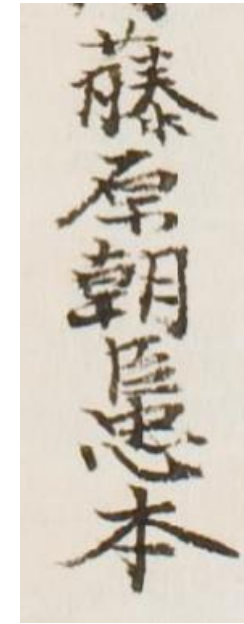 藤原朝臣忠本